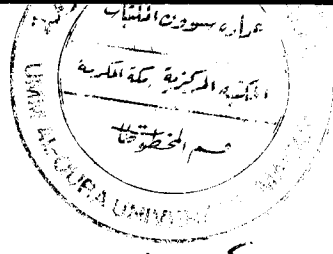 عمادة شؤون المكتبات
المكتبة المركزية - مكة المكرمة
قسم المخطوطات
UMM AL-QURA UNIVERSITY